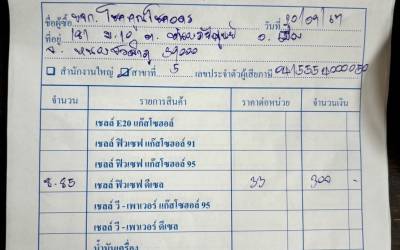 ชื่อผู้ซื้อ หจก. โชคคูณโชคอวร วันที่ 20/09/67
ที่อยู่ 121 ม.10 ต. อ. เมือง
จ. หนองบัวลำภู 39000
สำนักงานใหญ่ สาขาที่ 5 เลขประจำตัวผู้เสียภาษี
จำนวน รายการสินค้า ราคาต่อหน่วย จำนวนเงิน
เชลล์ E20 แก๊สโซฮอล์
เชลล์ ฟิวเซฟ แก๊สโซฮอล์ 91
เชลล์ ฟิวเซฟ แก๊สโซฮอล์ 95
8.85 เชลล์ ฟิวเซฟ ดีเซล 33 300
เชลล์ วี - เพาเวอร์ แก๊สโซฮอล์ 95
เชลล์ วี - เพาเวอร์ ดีเซล
น้ำมันเครื่อง